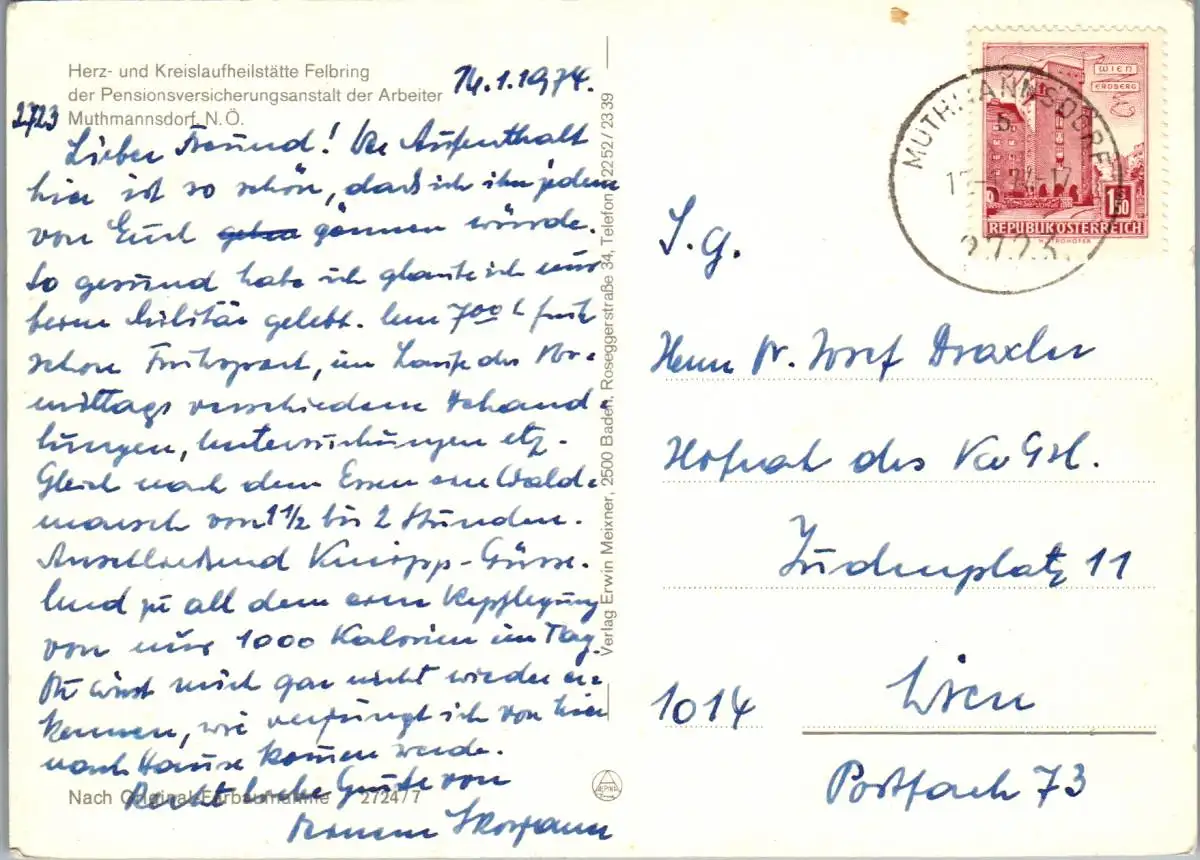 Herz- und Kreislaufheilstätte Felbring
der Pensionsversicherungsanstalt der Arbeiter
Muthmannsdorf, N.Ö.
2723
14.1.1974.
Lieber Freund! Der Aufenthalt
hier ist so schön, dass ich ihn jedem
von Euch gönnen würde.
So gesund habe ich glaube ich nur
beim Militär gelebt. Um 7 00 h früh
schon Frühsport, im Laufe des Vor-
mittags verschiedene Behand-
lungen, Untersuchungen etz.
Gleich nach dem Essen ein Wald-
marsch von 1 1/2 bis 2 Stunden.
Anschließend Kneipp-Güsse.
Und zu all dem eine Verpflegung
von nur 1000 Kalorien im Tag.
Du wirst mich gar nicht wieder er-
kennen, wie verjüngt ich von hier
nach Hause komen werde.
Recht liebe Grüße von
Deinem
Nach Original-Farbaufnahme 2724/7
Verlag Erwin Meixner, 2500 Baden, Roseggerstraße 34, Telefon 2252/2339
WIEN
ERDBERG
1.50
REPUBLIK ÖSTERREICH
MUTHMANNSDORF
2723
S.g.
Herrn Dr. Josef Draxler
Hofrat des VwGH.
Judenplatz 11
1014 Wien
Postfach 73